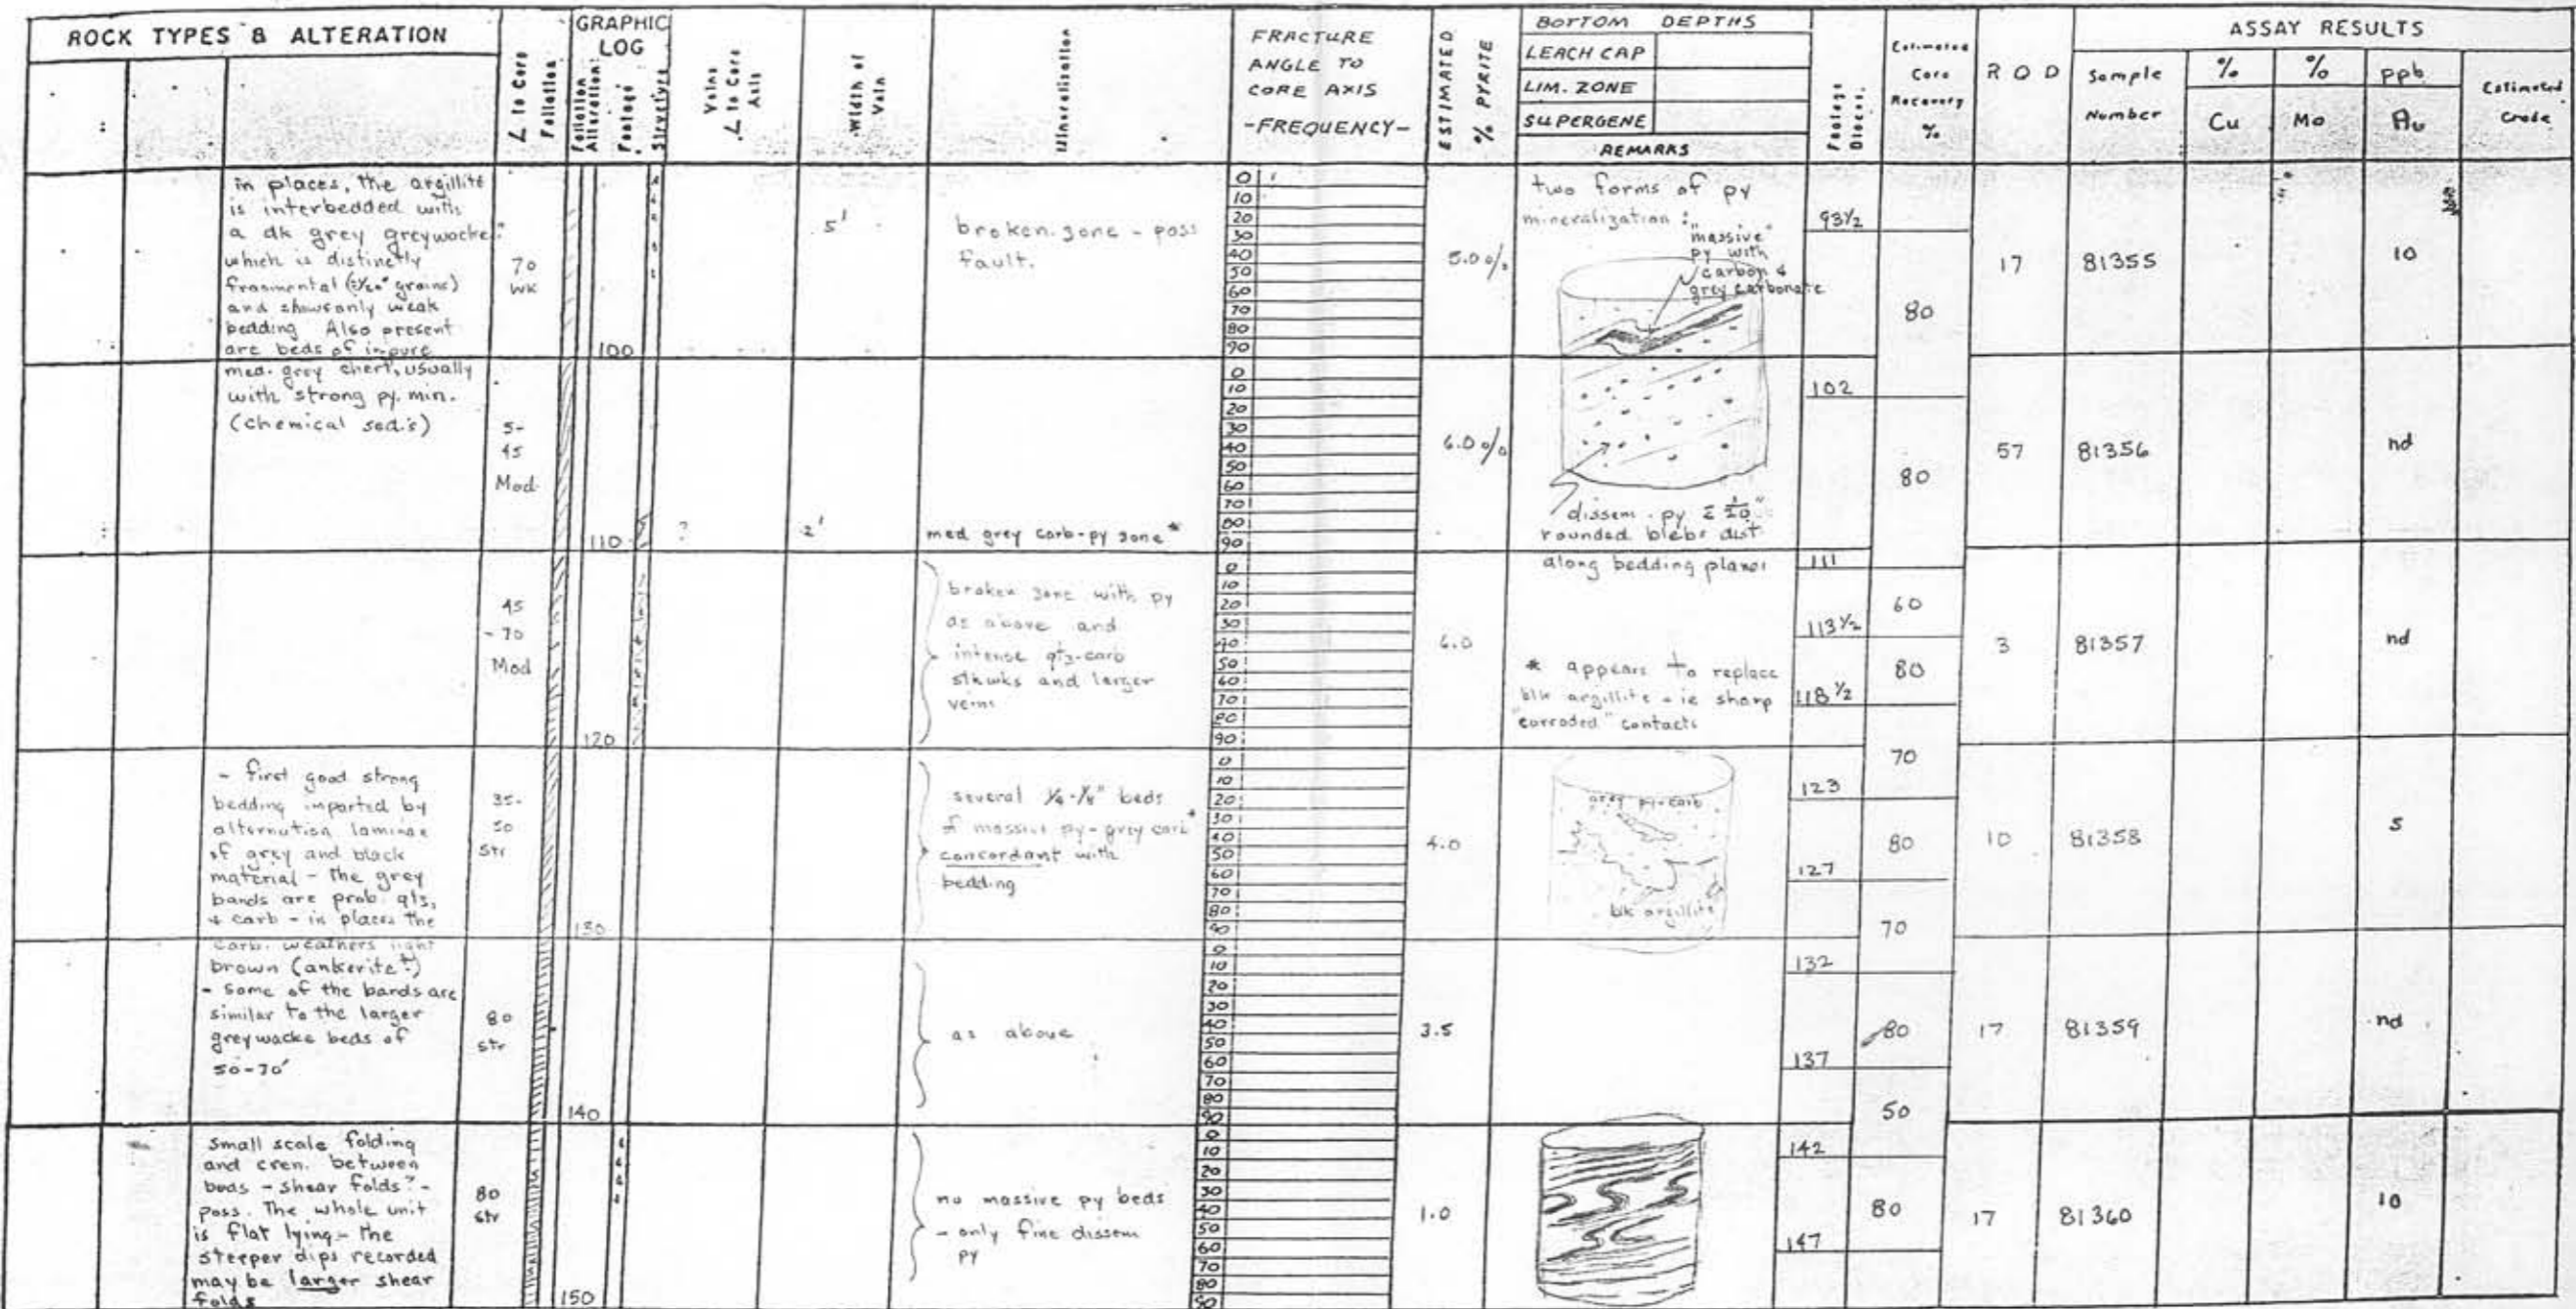 ROCK TYPES & ALTERATION
∠ to Core
Foliation
GRAPHIC
LOG
Foliation
Alteration
Footage
Structure
Veins
∠ to Core
Axis
Width of
Vein
Mineralization
FRACTURE
ANGLE TO
CORE AXIS
-FREQUENCY-
ESTIMATED
% PYRITE
BOTTOM DEPTHS
LEACH CAP
LIM. ZONE
SUPERGENE
REMARKS
Footage
Blocks
Estimated
Core
Recovery
%
R Q D
ASSAY RESULTS
Sample
Number
%
Cu
%
Mo
ppb
Au
Estimated
Grade
in places, the argillite
is interbedded with
a dk grey greywacke
which is distinctly
fragmental (1/20" grains)
and shows only weak
bedding Also present
are beds of impure
med. grey chert, usually
with strong py. min.
(chemical sed.s)
70
WK
100
5'
broken zone - poss
fault.
0
10
20
30
40
50
60
70
80
90
5.0%
two forms of py
mineralization :
"massive"
py with
carbon &
grey carbonate
93½
80
17
81355
10
5-
45
Mod
110
?
2'
med grey carb-py zone *
0
10
20
30
40
50
60
70
80
90
6.0%
dissem. py ≤ 1/20"
rounded blebs dist
along bedding planes
102
80
57
81356
nd
45
- 70
Mod
120
broken zone with py
as above and
intense qtz-carb
stwks and larger
veins
0
10
20
30
40
50
60
70
80
90
6.0
* appears to replace
blk argillite - ie sharp
"corroded" contacts
111
113½
118½
60
80
70
3
81357
nd
- first good strong
bedding imparted by
alternation laminae
of grey and black
material - the grey
bands are prob. qtz,
+ carb - in places the
carb. weathers light
brown (ankerite?)
- some of the bands are
similar to the larger
greywacke beds of
50-70'
35-
50
str
130
several ¼-⅛" beds
of massive py-grey carb *
concordant with
bedding
0
10
20
30
40
50
60
70
80
90
4.0
grey py-carb
blk argillite
123
127
80
70
10
81358
5
80
str
140
as above
0
10
20
30
40
50
60
70
80
90
3.5
132
137
80
50
17
81359
nd
small scale folding
and cren. between
beds - shear folds? -
poss. The whole unit
is flat lying - the
steeper dips recorded
may be larger shear
folds
80
str
150
no massive py beds
- only fine dissem
py
0
10
20
30
40
50
60
70
80
90
1.0
142
147
80
17
81360
10